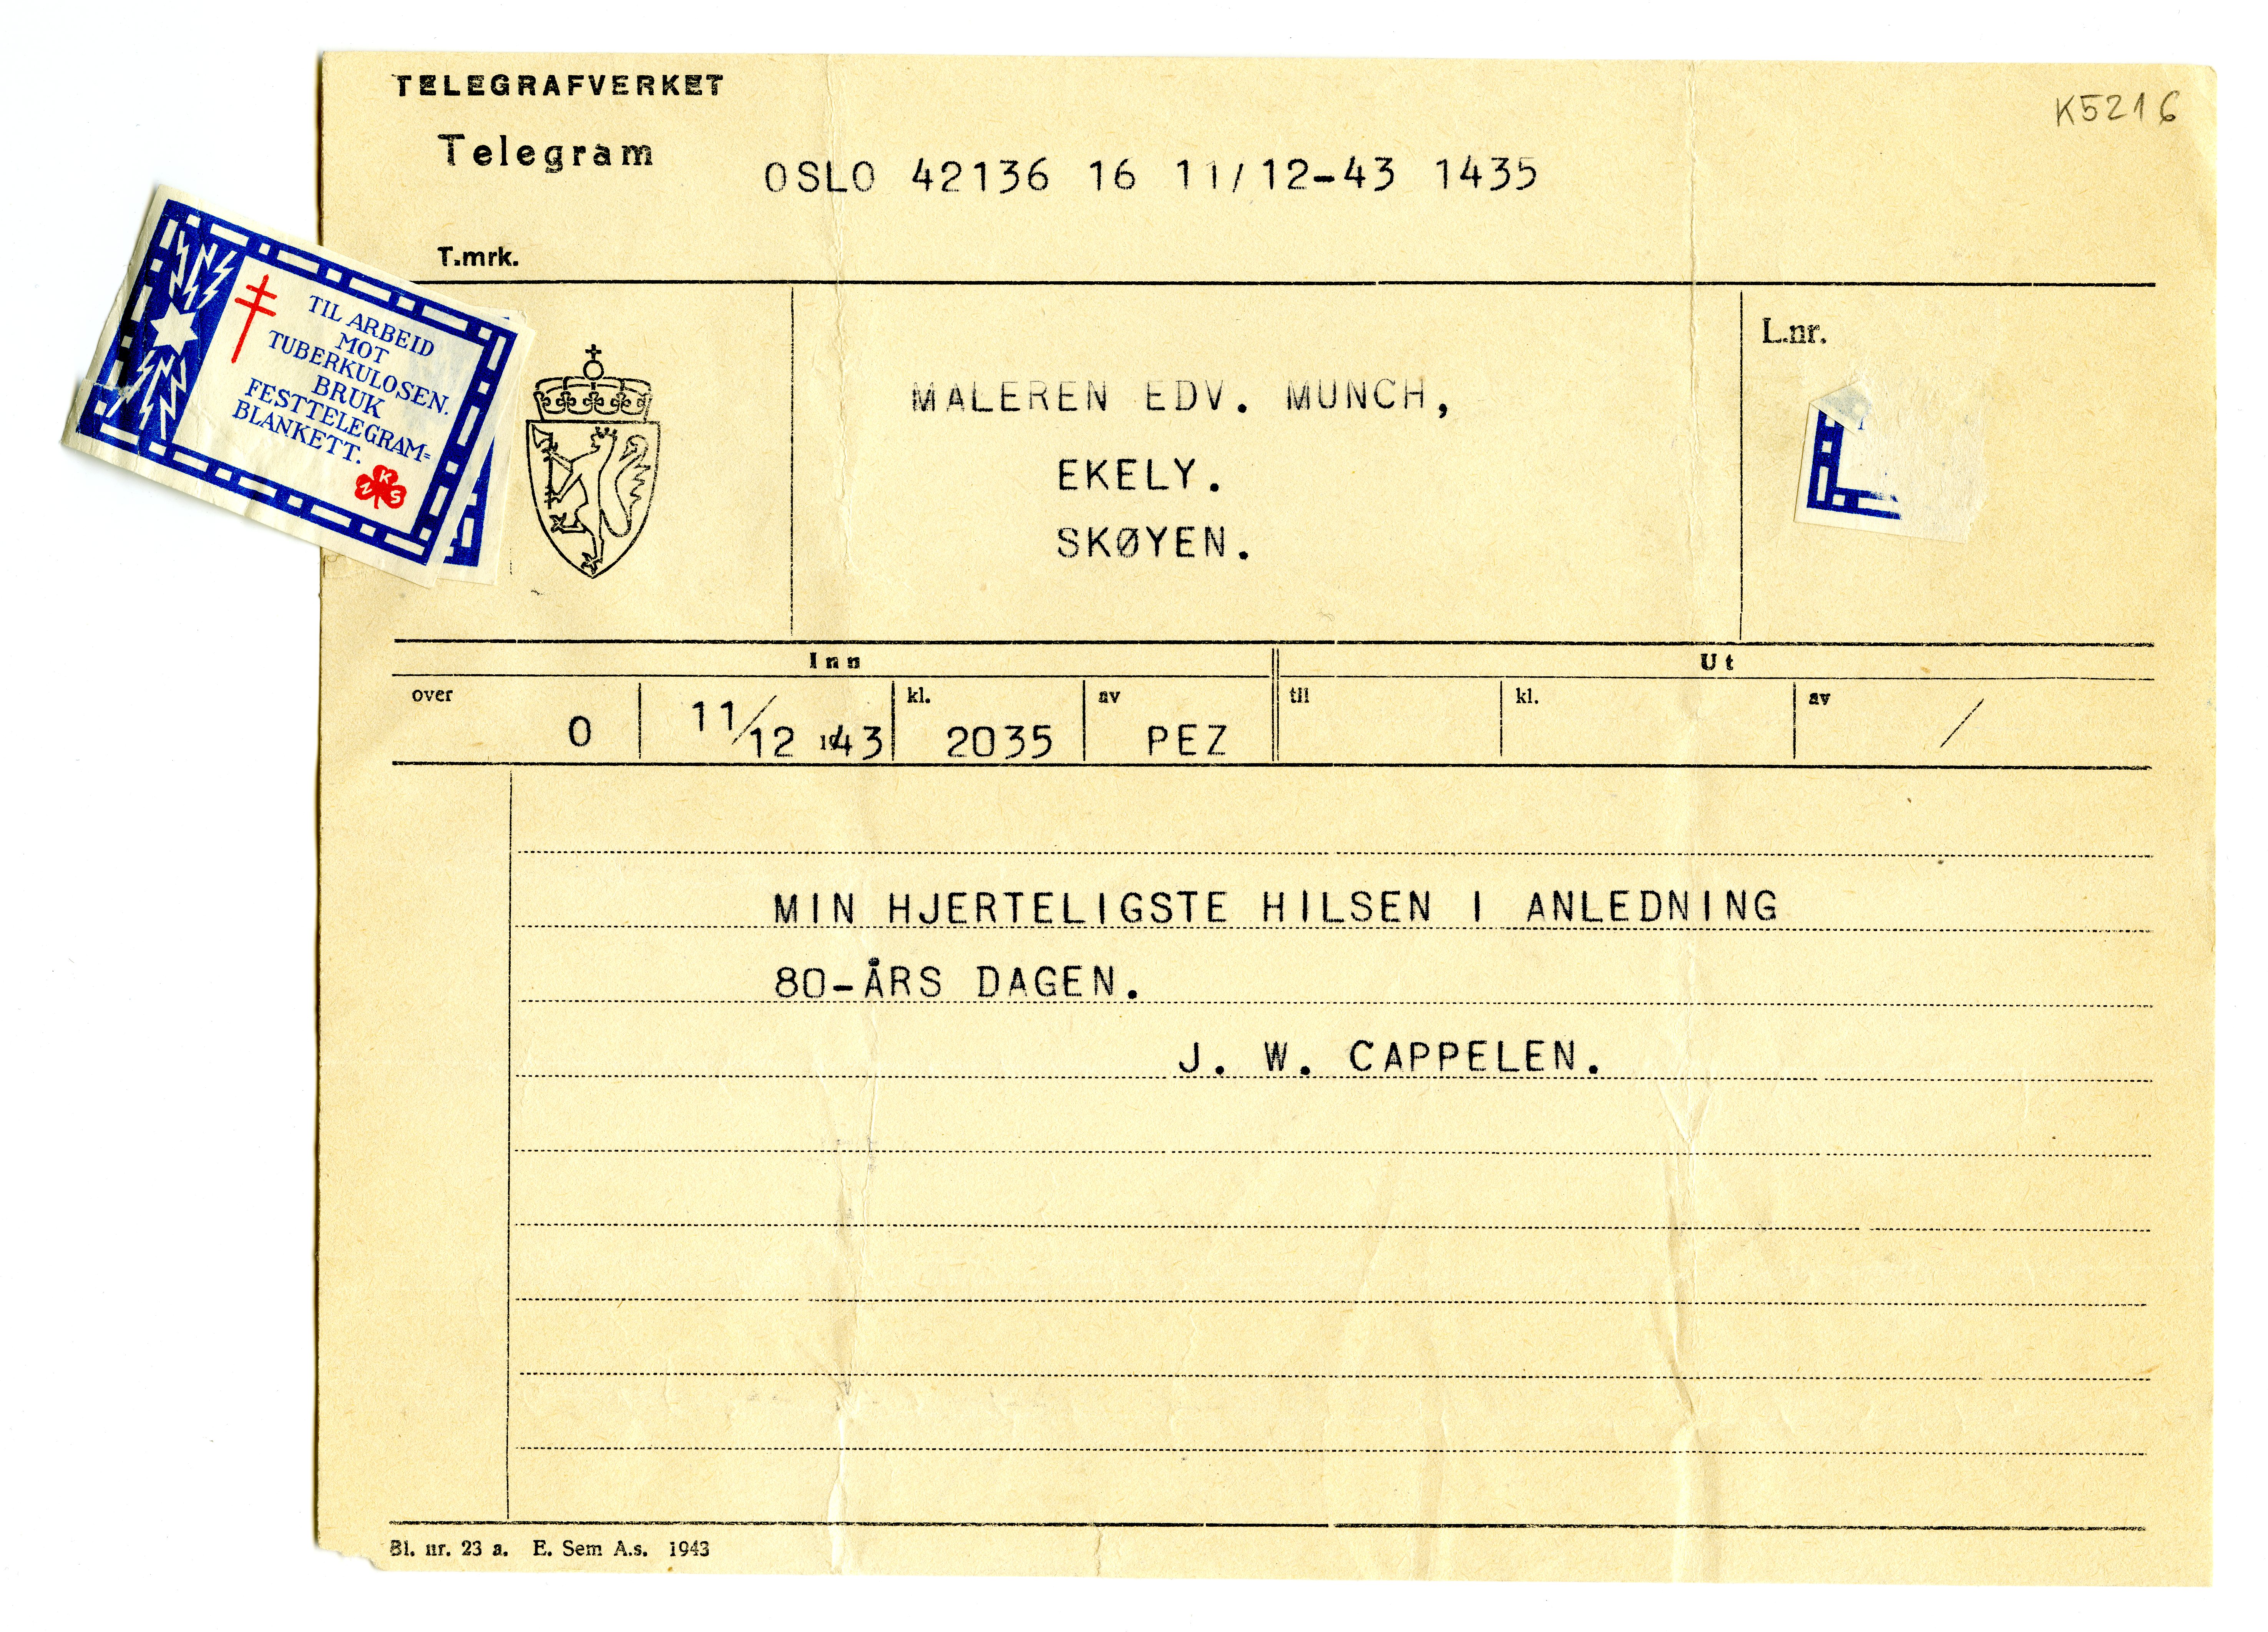 TELEGRAFVERKET
K5216
Telegram
OSLO 42136 16 11/12-43 1435
T.mrk.
TIL ARBEID
MOT
TUBERKULOSEN.
BRUK
FESTTELEGRAM=
BLANKETT.
NKS
L.nr.
MALEREN EDV. MUNCH,
EKELY.
SKØYEN.
Inn
Ut
over O 11/12 1943 kl. 2035 av PEZ til kl. av /
MIN HJERTELIGSTE HILSEN I ANLEDNING
80-ÅRS DAGEN.
J. W. CAPPELEN.
Bl. nr. 23 a. E. Sem A.s. 1943